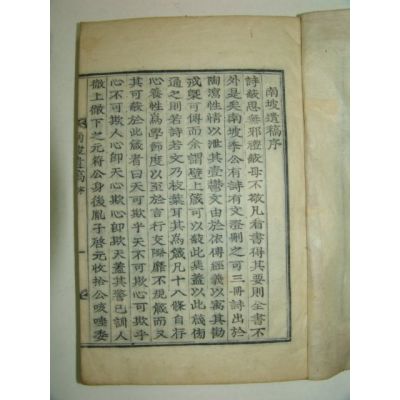 南坡遺稿序
詩蔽思無邪禮蔽毋不敬凡看書得其要則全書不
外是矣南坡李公有詩有文澄刪之可三冊詩出於
陶寫性情以泄其壹鬱文由於依傍經義以寓其勸
戒槩可傳而余謂壁上箴可以蔽此集蓋以此箴傍
通之則若詩若文乃枝葉耳其爲箴凡十八條自存
心養性爲學節度以至於言行交際靡不規箴而又
其可蔽於此箴者曰天可欺乎天不可欺心可欺乎
心不可欺人心卽天心欺心卽欺天蓋其警已誨人
徹上徹下之元符公身後胤子啓元收拾公咳唾委
南坡遺稿 序 一